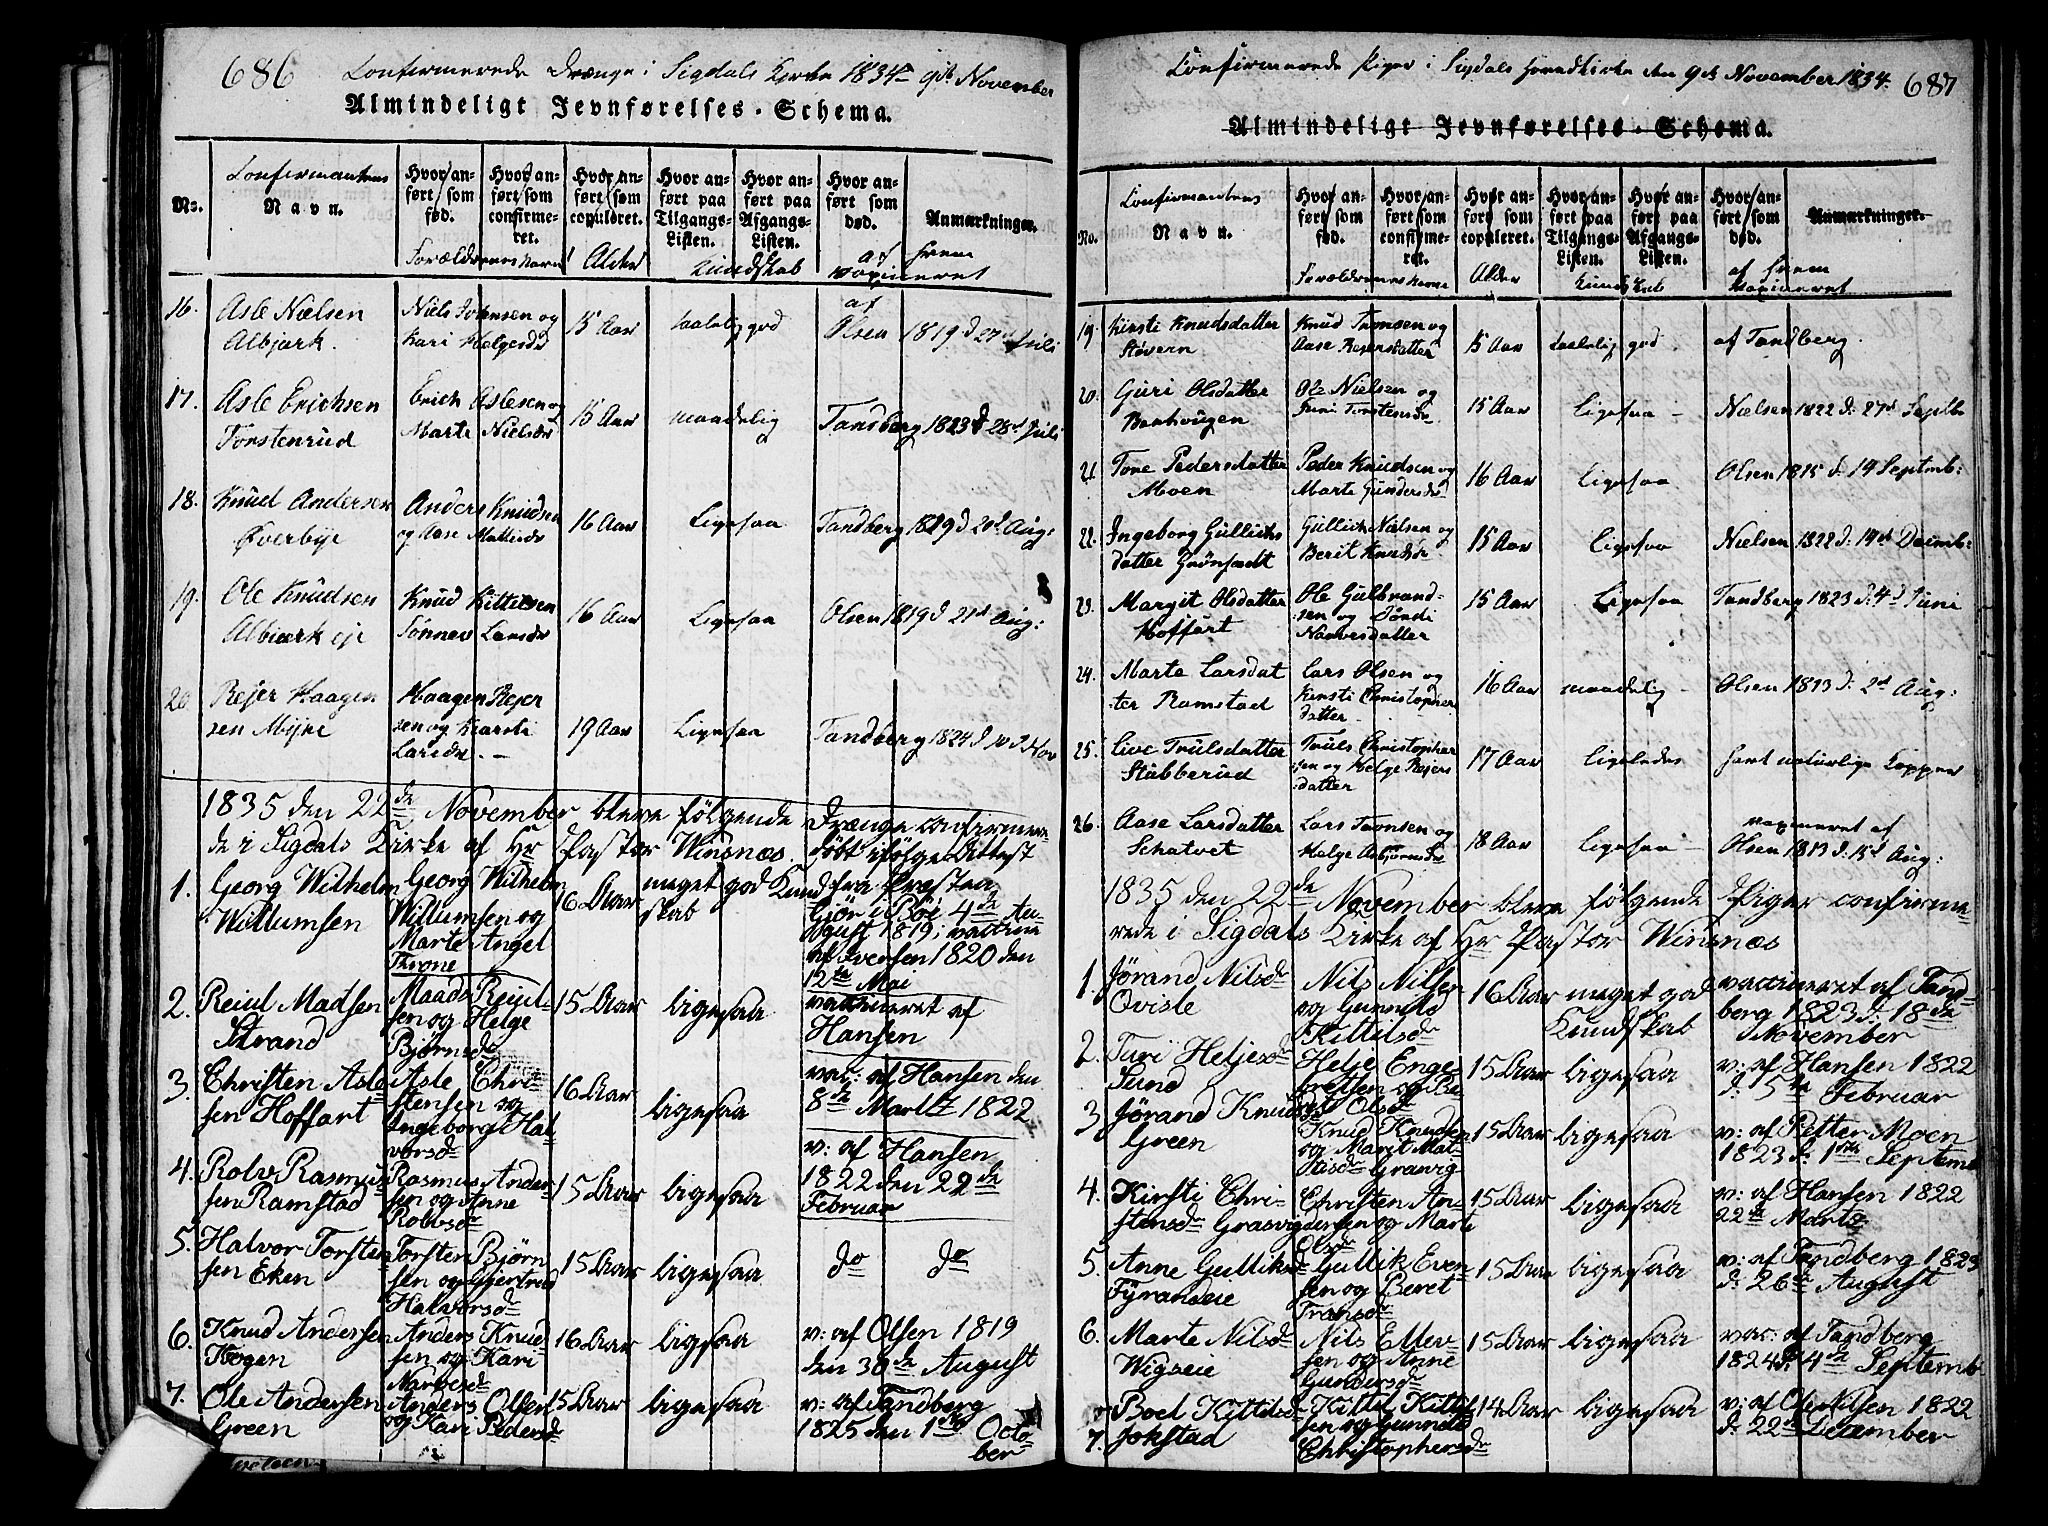 686 Confirmerede Drænge i Sigdals Kirke 1834 9de November
Almindeligt Jevnførelses-Schema.
No.
Confirmantens
Navn.
Hvor an-
ført som
fød.
Hvor an-
ført som
confirme-
ret.
Hvor an-
ført som
copuleret.
Hvor an-
ført paa
Tilgangs-
Listen.
Hvor an-
ført paa
Afgangs-
Listen.
Hvor an-
ført som
død.
Anmærkninger.
Forældrenes Navne
Alder
Kundskab
af hvem
vaxineret
16. Asle Nielsen
Albjørk.
Niels Johnsen og
Kari Helgesdr
15 Aar
taalelig god
af
Olsen 1819 d 27d Juli
17. Asle Erichsen
Torstenrud
Erich Aslesen og
Marte Nielsdr
15 Aar
maadelig
Tandberg 1823 d 28d Juli
18. Knud Andersen
Øverbye
Anders Knudsen
og Aase Mattisdr
16 Aar
Ligesaa
Tandberg 1819 d 20d Aug:
19. Ole Knudsen
Albiørk eje
Knud Kittelsen
Tønner Larsdr
16 Aar
Ligesaa
Olsen 1819 d 21d Aug:
20 Rejer Haagen
sen Myhre
Haagen Rejer
sen og Kersti
Larsdr. -
19 Aar
Ligesaa
Tandberg 1824 d 10 d Nov
1835 den 22de November bleve følgende Drænge confirmere
de i Sigdals Kirke af Hr Pastor Winsnæs.
1. Georg Wilhelm
Willumsen
Georg Wilhelm
Willumsen og
Marte Angel
Throne
16 Aar
meget god Kund
skab
født ifølge Attest
fra Præsten
Gjør i Bøe 4de Au-
gust 1819; vaccine
af Iversen 1820 den
12te Mai
2. Reiul Madsen
Strand
Maads Reiul-
sen og Helge
Bjørnsdr
15 Aar
ligesaa
vaccineret af
Hansen
3. Christen Asle
sen Hoffart
Asle Chri-
stensen og
Ingeborg Hal
vorsdr
16 Aar
ligesaa
vac: af Hansen den
8de Martz 1822
4. Rolv Rasmus
sen Ramstad
Rasmus Ander-
sen og Anne
Rolvsdr
15 Aar
ligesaa
v: af Hansen
1822 den 22de
Februar
5. Halvor Torste
sen Eken
Torsten Bjørn
sen og Gjertrud
Halvorsdr
15 Aar
ligesaa
do do
6. Knud Andersen
Kogen
Anders Knud
sen og Kari
Narvesdr
16 Aar
ligesaa
v: af Olsen 1819
den 30de August
7. Ole Andersen
Green
Anders Olsen
og Kari Pedersdr
15 Aar
ligesaa
v: af Tandberg
1825 den 1ste Octo-
ber
Confirmerede Piger i Sigdals Hovedkirke den 9de November 1834. 687
Almindeligt Jevnførelses-Schema.
No.
Confirmantens
Navn.
Hvor an-
ført som
fød.
Hvor an-
ført som
confirme-
ret.
Hvor an-
ført som
copuleret.
Hvor an-
ført paa
Tilgangs-
Listen.
Hvor an-
ført paa
Afgangs-
Listen.
Hvor an-
ført som
død.
Anmærkninger.
Forældrenes Navne
Alder
Kundskab
af hvem
vaxineret
19. Kirsti Knudsdatter
Støvern
Knud Tronsen og
Aase Rejersdatter
15 Aar
taalelig god
af Tandberg.
20. Guri Olsdatter
Ole Nielsen og
Guri Torstensdr
15 Aar
Ligesaa -
Nielsen 1822 d: 27d Septb
21 Tone Pedersdatter
Moen
Peder Knudsen og
Marte Gundersdr
16 Aar
Ligesaa
Olsen 1815 d: 19 Septmb:
22. Ingeborg Gullichs
datter Grønsædt
Gullich Nielsen og
Berit Knudsdr
15 Aar
Ligesaa
Nielsen 1822 d: 19d Decmb:
23. Margit Olsdatter
Hoffart
Ole Gulbrand-
sen og Jøndi
Narvesdatter
15 Aar
Ligesaa
Tandberg 1823 d: 4d Juni
24. Marte Larsdat
ter Ramstad
Lars Olsen og
Kersti Christopher
datter -
16 Aar
maadelig -
Olsen 1813 d: 2d Aug:
25. Live Trulsdatter
Stubberud
Truls Christopher
sen og Helge Rejers
datter
17 Aar
Ligeledes
havt naturlige Kopper
26. Aase Larsdatter
Schatvet
Lars Tronsen og
Helge Asbjørnsdr
18 Aar
Ligesaa -
vaxineret af
Olsen 1813 d: 15d Aug:
1835 den 22de November bleve følgende Piger confirme-
rede i Sigdals Kirke af Hr Pastor Winsnæs
1. Jørand Nilsdr
Oviste
Nils Nilsen
og Gunnild
Kittilsdr
16 Aar
meget god
Kundskab
vaccineret af Tand-
berg 1823 d: 18de
November
2. Turi Heljesdr
Lund
Helje Enge-
bretsen og Be-
rit Olsdr
15 Aar
ligesaa
v: af Hansen 1822
d: 5te Februar
3 Jørand Knudsdr
Green
Knud Knudsen
og Marit Mat-
tisdr Grasvig
15 Aar
ligesaa
v: af Petter Moen
1823 d: 1ste Septemb
4. Kirsti Chri-
stensdr Grasvig
Christen An-
dersen og Marte
Olsdr
15 Aar
ligesaa
v: af Hansen 1822
22de Marts
5. Anne Gulliksdr
Fyraneeie
Gullik Even
sen og Beret
Tronsdr
15 Aar
ligesaa
v: af Tandberg 1823
d: 26de August
6. Marte Nilsdr
Wigseie
Nils Ellev-
sen og Anne
Gundersdr
15 Aar
ligesaa
vac: af Tandberg
1824 d: 4de Septemb
7. Boel Kittilsdr
Jokstad
Kittil Kittil
sen og Gunnild
Christophersdr
14 Aar
ligesaa
v: af Ole Nilsen 1822
d: 22de December